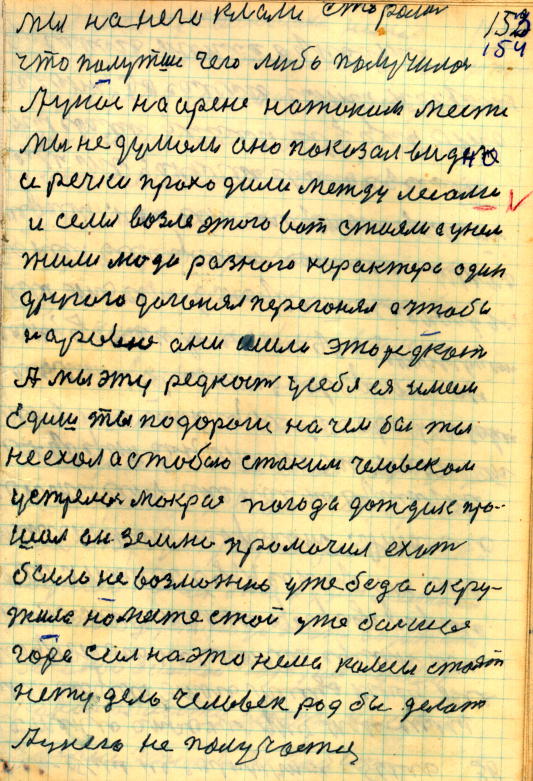 мы на него клали старались
152
154
что полутше чего либо получилось
А у нас на арене натаком месте
мы не думали оно показал видно
а речки проходили между лесами
и села возле этого вот стояли а у них
жили люди разного характера один
другого догонял перегонял а чтобы
наравне они жили это редкост
А мы эту редкост усебя ея имеем
Едиш ты подороги на чем бы ты
неехал а стобою стаким человеком
устрелса мокрая погода дождик про-
шол он землю промочил ехат
было невозможно уже беда акру-
жила наместе стой уже большая
горе сил на это нема колеса стоят
нету дела человек рад бы делат
А у него не получаетца